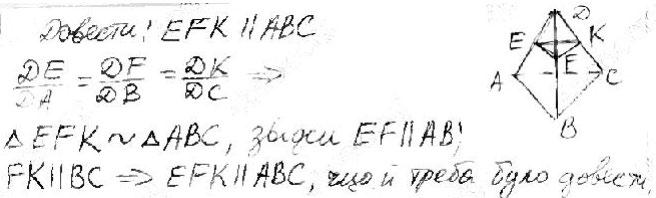 Довести! EFK || ABC
DE/DA = DF/DB = DK/DC ⇒
△EFK ~ △ABC, звідки EF||AB,
FK||BC ⇒ EFK||ABC, що й треба було довести,
D
E K
E
A C
B